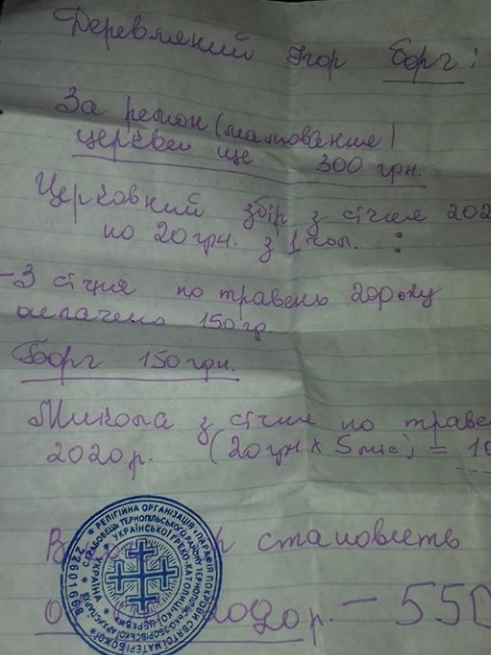 Деревляний Ігор борг:
За ремон (малювання)
церкви ще 300 грн.
Церковний збір з січня 202
по 20 грн. з 1 чол. :
- З січня по травень 20року
оплачено 150 гр.
Борг 150 грн.
Микола з січня по траве
2020р. (20 грн х 5 міс) = 10
В становить
р. - 550
РЕЛІГІЙНА ОРГАНІЗАЦІЯ ПАРАФІЯ ПОКРОВИ СВЯТОЇ МАТЕРІ БОЖОЇ
ТЕРНОПІЛЬСЬКОГО РАЙОНУ
УКРАЇНСЬКОЇ ГРЕКО-КАТОЛИЦЬКОЇ ЦЕРКВИ
УКРАЇНА